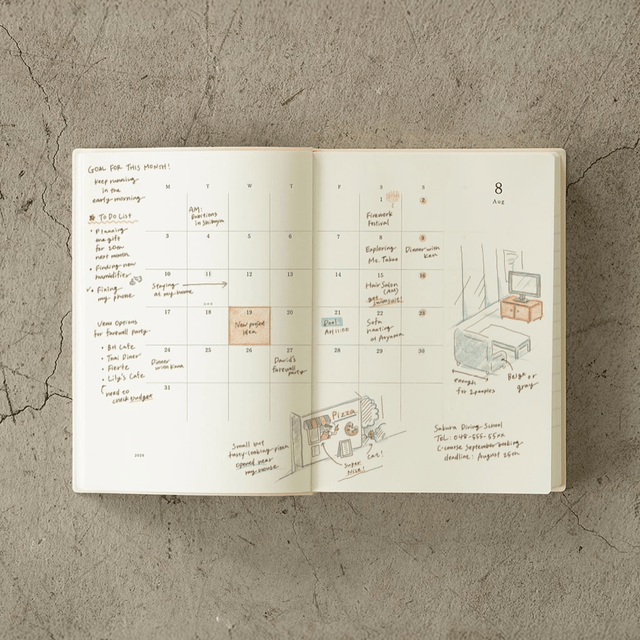 GOAL FOR THIS MONTH!
keep running
in the
early-morning
To Do List
• Planning
the gift
for
next month
• Finding new
humidifier
• Fixing
my phone
Venue Options
for farewell party
• BH Cafe
• Thai Diner
• Fiorte
• Lily's Cafe
need to
check budget
2020
M T W T
AM:
in Shibuya
3 4 5 6
10 11 12 13
Staying
at my home
17 18 19 20
New project
idea
24 25 26 27
Dinner
with Kana
David's
farewell
party
31
F S S
1 2
Firework
festival
7 8 9
Exploring
Mt. Takao
Dinner with
Ken
14 15 16
Hair Salon
(AM)
get
swimsuit!
21 22 23
AM 11:00
Sofa
hunting
at Aoyama
28 29 30
8
Aug
enough
for 2 peoples
Beige or
gray
Small but
tasty-looking-pizza
opened near
my house
Pizza
Super
nice!
Cute!
Sakura Diving School
TEL: 048-555-55xx
C-course September-booking
deadline: August 25th